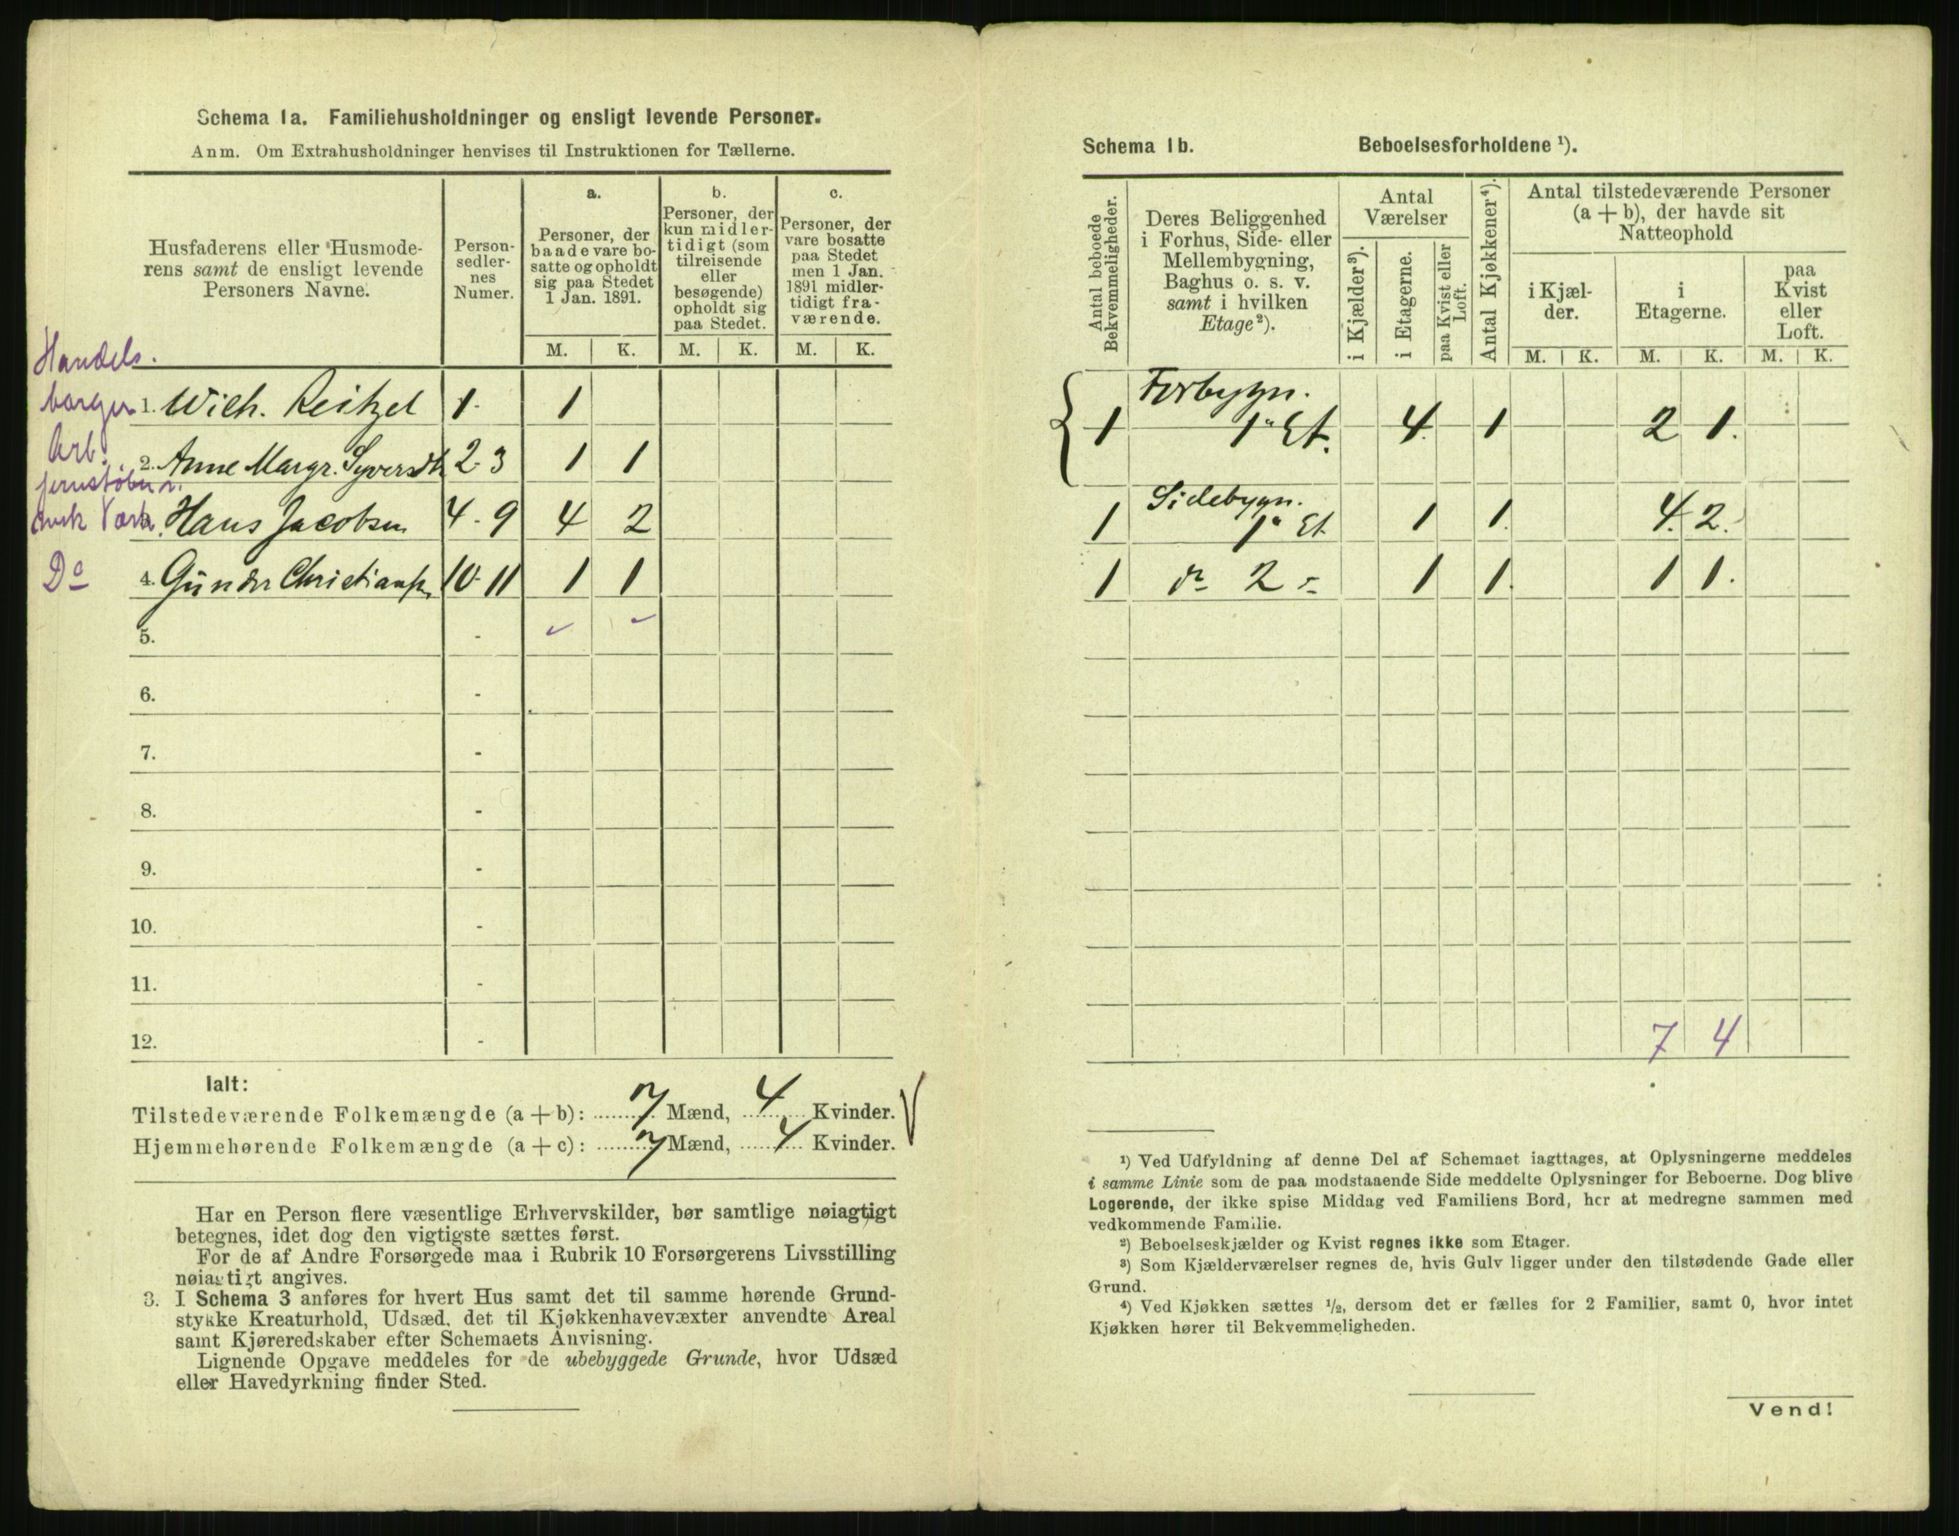 Schema 1a. Familiehusholdninger og ensligt levende Personer.
Anm. Om Extrahusholdninger henvises til Instruktionen for Tællerne.
Husfaderens eller Husmode-
rens samt de ensligt levende
Personers Navne.
Person-
sedler-
nes
Numer.
a.
Personer, der
baade vare bo-
satte og opholdt
sig paa Stedet
1 Jan. 1891.
b.
Personer, der
kun midler-
tidigt (som
tilreisende
eller
besøgende)
opholdt sig
paa Stedet.
c.
Personer, der
vare bosatte
paa Stedet
men 1 Jan.
1891 midler-
tidigt fra-
værende.
M. K. M. K. M. K.
Handels.
borger 1. Wilh. Reitzel 1 - 1
Arb. 2. Anne Margr. Syversdt 2 - 3 1 1
jernstøber
mek Værk. Hans Jacobsen 4 - 9 4 2
Do 4. Gunder Christiansen 10 - 11 1 1
5. -
6. -
7. -
8. -
9. -
10. -
11. -
12. -
Ialt:
Tilstedeværende Folkemængde (a + b): 7 Mænd, 4 Kvinder.
Hjemmehørende Folkemængde (a + c): 7 Mænd, 4 Kvinder.
Har en Person flere væsentlige Erhvervskilder, bør samtlige nøiagtigt
betegnes, idet dog den vigtigste sættes først.
For de af Andre Forsørgede maa i Rubrik 10 Forsørgerens Livsstilling
nøiagtigt angives.
3. I Schema 3 anføres for hvert Hus samt det til samme hørende Grund-
stykke Kreaturhold, Udsæd, det til Kjøkkenhavevæxter anvendte Areal
samt Kjøreredskaber efter Schemaets Anvisning.
Lignende Opgave meddeles for de ubebyggede Grunde, hvor Udsæd
eller Havedyrkning finder Sted.
Schema 1b. Beboelsesforholdene ¹).
Antal beboede
Bekvemmeligheder.
Deres Beliggenhed
i Forhus, Side- eller
Mellembygning,
Baghus o. s. v.
samt i hvilken
Etage ²).
Antal
Værelser
i Kjælder ³).
i Etagerne.
paa Kvist eller
Loft.
Antal Kjøkkener ⁴).
Antal tilstedeværende Personer
(a + b), der havde sit
Natteophold
i Kjæl-
der.
i
Etagerne.
paa
Kvist
eller
Loft.
M. K. M. K. M. K.
Forbygn.
1 1ª Et. 4. 1 2 1.
Sidebygn.
1 1ª Et 1 1. 4. 2.
1 do 2 - 1 1. 1 1.
7 4
¹) Ved Udfyldning af denne Del af Schemaet iagttages, at Oplysningerne meddeles
i samme Linie som de paa modstaaende Side meddelte Oplysninger for Beboerne. Dog blive
Logerende, der ikke spise Middag ved Familiens Bord, her at medregne sammen med
vedkommende Familie.
²) Beboelseskjælder og Kvist regnes ikke som Etager.
³) Som Kjælderværelser regnes de, hvis Gulv ligger under den tilstødende Gade eller
Grund.
⁴) Ved Kjøkken sættes ½, dersom det er fælles for 2 Familier, samt 0, hvor intet
Kjøkken hører til Bekvemmeligheden.
Vend!